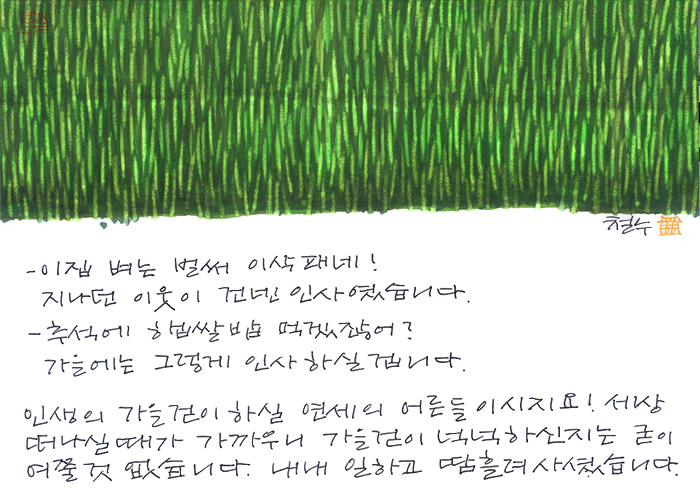 철수
- 이집 벼는 벌써 이삭 패네!
지나던 이웃이 건넨 인사였습니다.
- 추석에 햅쌀밥 먹겠잖어?
가을에는 그렇게 인사하실겝니다.
인생의 가을걷이 하실 연세의 어른들이시지요! 세상
떠나실때가 가까우니 가을걷이 넉넉하신지는 굳이
여쭐것 없습니다. 내내 일하고 땀흘려 사셨습니다.